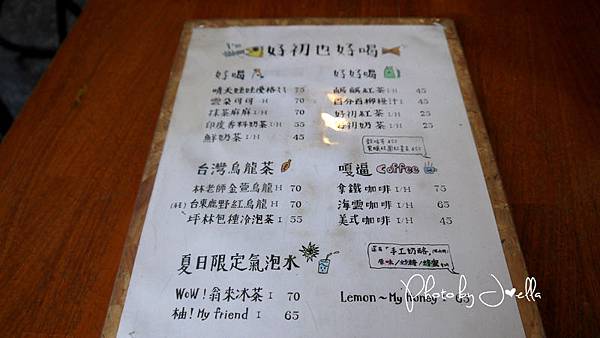 好初也好喝
好喝
晴天娃娃優格 I 75
雲朵可可 I.H 70
抹茶麻麻 I/H 70
印度香料奶茶 I/H 55
鮮奶茶 I 45
好好喝
鹹鹹紅茶 I/H 45
百分百柳橙汁 I 45
好初紅茶 I/H 25
好初奶茶 I/H 25
台灣烏龍茶
林老師金萱烏龍 H 70
台東鹿野紅烏龍 H 70
坪林包種冷泡茶 I 55
嘎逼 Coffee
拿鐵咖啡 I/H 75
海雲咖啡 I/H 65
美式咖啡 I/H 45
「手工奶酪」
原味/
夏日限定氣泡水
WoW!翁來冰茶 I 70
柚!My friend I 65
Lemon~My honey 65
Photo by Joella